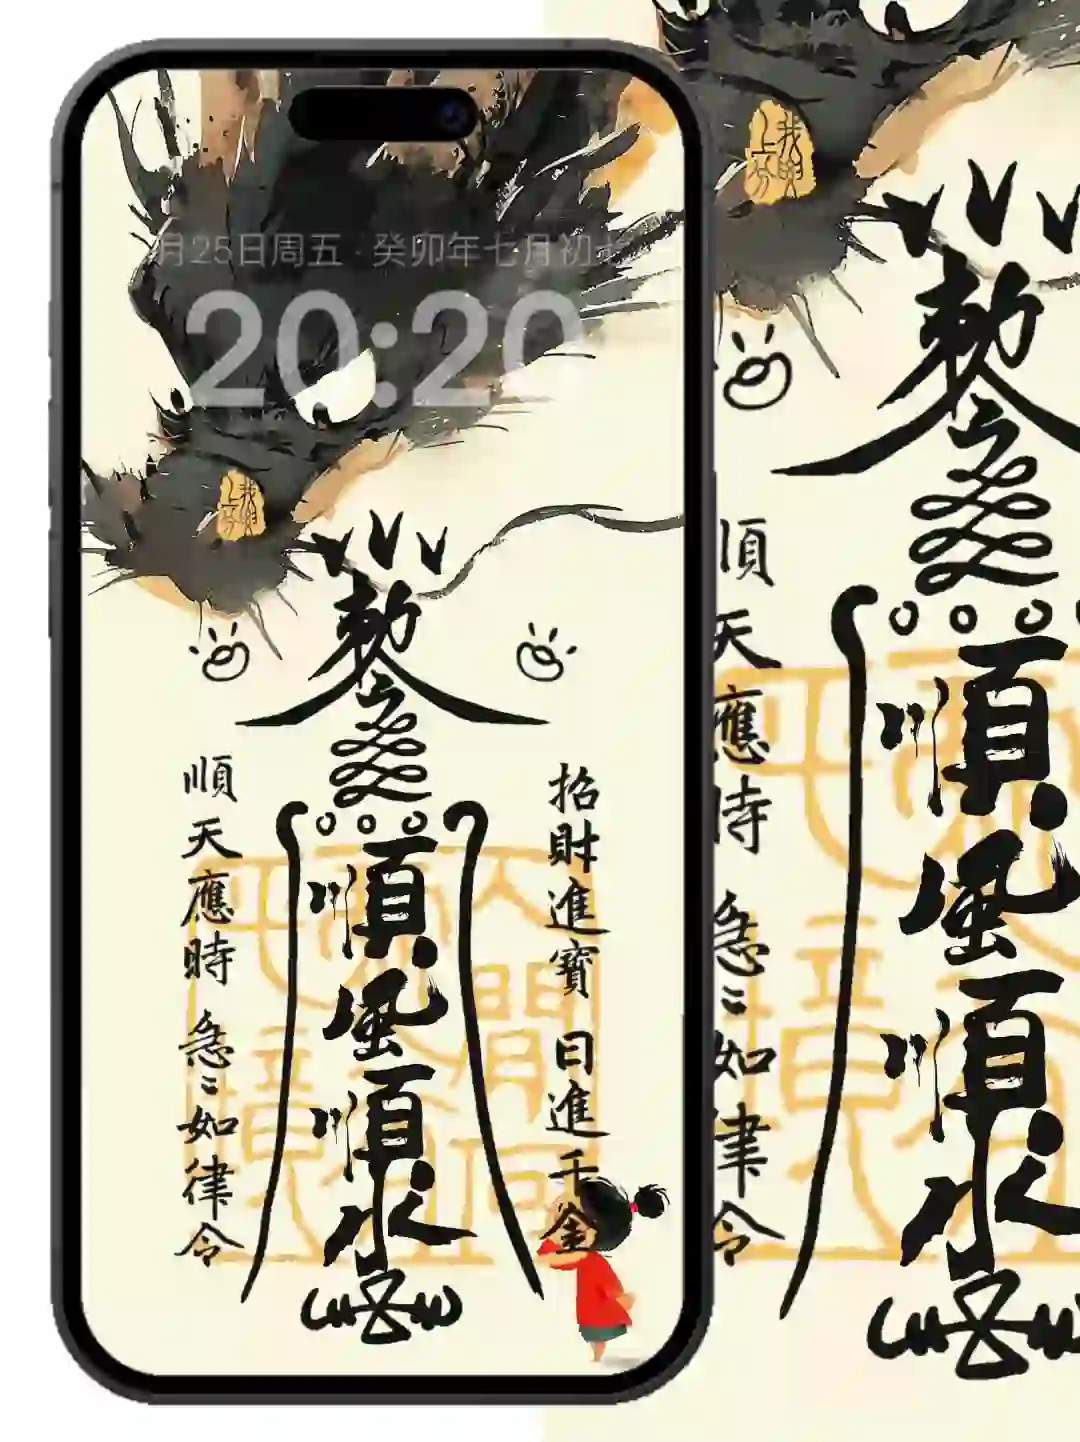 月25日周五·癸卯年七月初七
20:20
我的
上分
敕令
順風順水
招財進寶 日進千金
順天應時 急〻如律令
我的
上分
敕令
順風順水
順天應時 急〻如律令